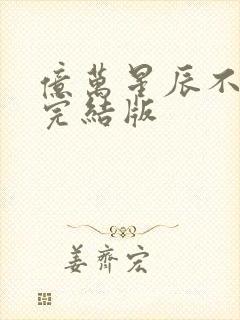 億萬星辰不
完結版
姜齊宏